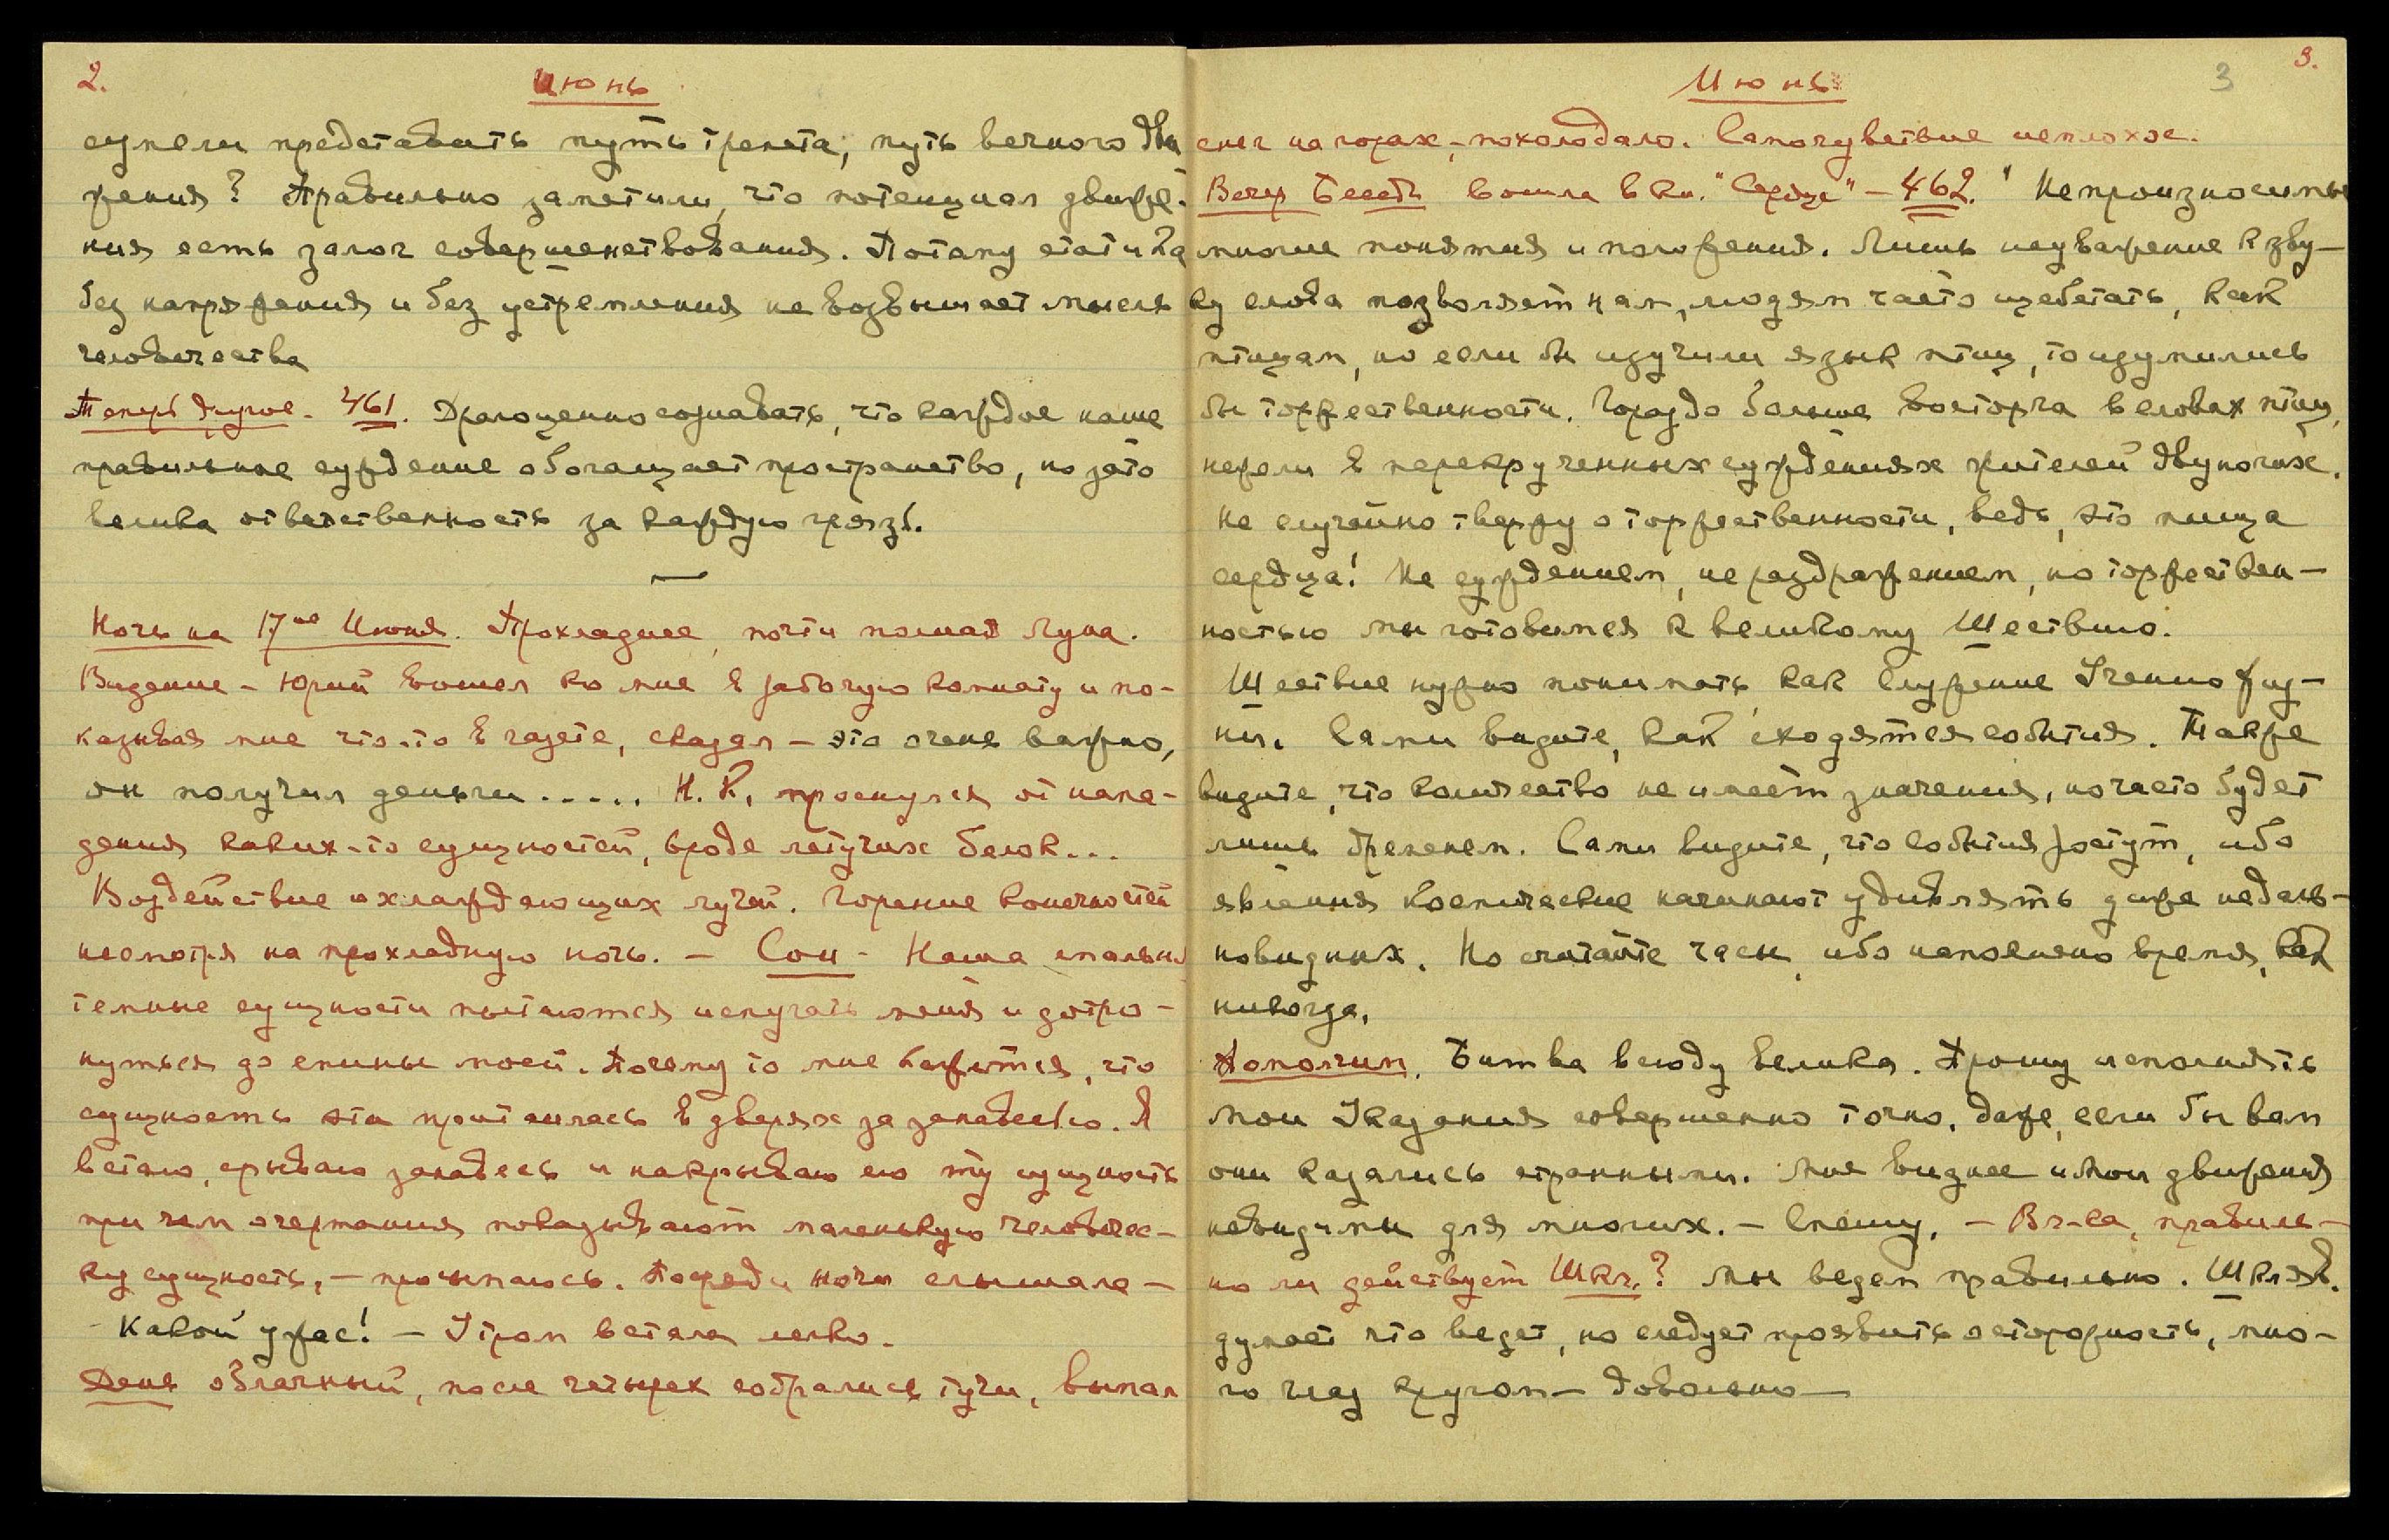 2.
Июнь
сумели представить путь трепета, путь вечного дви
жения? Правильно заметили, что потенциал движе-
ния есть залог совершенствования. Потому статика
без напряжения и без устремления не возвышает мысль
человечества
Теперь другое - 461. Драгоценно сознавать, что каждое наше
правильное суждение обогащает пространство, но зато
велика ответственность за каждую грязь.
Ночь на 17ое Июня. Прохладнее, почти полная Луна.
Видение - Юрий вошел ко мне в рабочую комнату и по-
казывая мне что-то в газете, сказал - это очень важно,
он получил деньги..... Н.К. проснулся от напа-
дения каких-то сущностей, вроде летучих белок...
Воздействие охлаждающих лучей. Горение конечностей
несмотря на прохладную ночь. - Сон - Наша спальня
темные сущности пытаются испугать меня и дотро-
нуться до спины моей. Почему то мне кажется, что
сущность эта притаилась в дверях за занавесью. Я
встаю, срываю занавесь и накрываю ею ту сущность
при чем очертания показывают маленькую человечес-
кую сущность, - просыпаюсь. Посреди ночи слышала -
Какой ужас! - Утром встала легко.
День облачный, после четырех собрались тучи, выпал
3.
3
Июнь
снег на горах, - похолодало. Самочувствие неплохое.
Вечер Беседа вошла в кн. "Сердце" - 462. "Непроизносимы
многие понятия и положения. Лишь неуважение к зву-
ку слова позволяет нам, людям часто щебетать, как
птицам, но если бы изучили язык птиц, то изумились
бы торжественности. Гораздо больше восторга в словах птиц,
нежели в перекрученных суждениях жителей двуногих.
Не случайно твержу о торжественности, ведь, это пища
сердца! Не суждением, не раздражением, но торжествен-
ностью мы готовимся к великому Шествию.
Шествие нужно понимать, как Служение Учению жиз-
ни. Сами видите, как сходятся события. Также
видите, что количество не имеет значения, но часто будет
лишь бременем. Сами видите, что события растут, ибо
явления космические начинают удивлять даже недаль-
новидных. Но считайте часы, ибо напряжено время, как
никогда.
Дополним. Битва всюду велика. Прошу исполнять
Мои Указания совершенно точно, даже, если бы вам
они казались странными. Мне виднее и Мои движения
невидимы для многих. - Спешу. - Вл-ка, правиль-
но ли действует Шкл.? Мы ведем правильно. Шкляв.
думает что ведет, но следует проявить осторожность, мно-
го глаз кругом - Довольно -